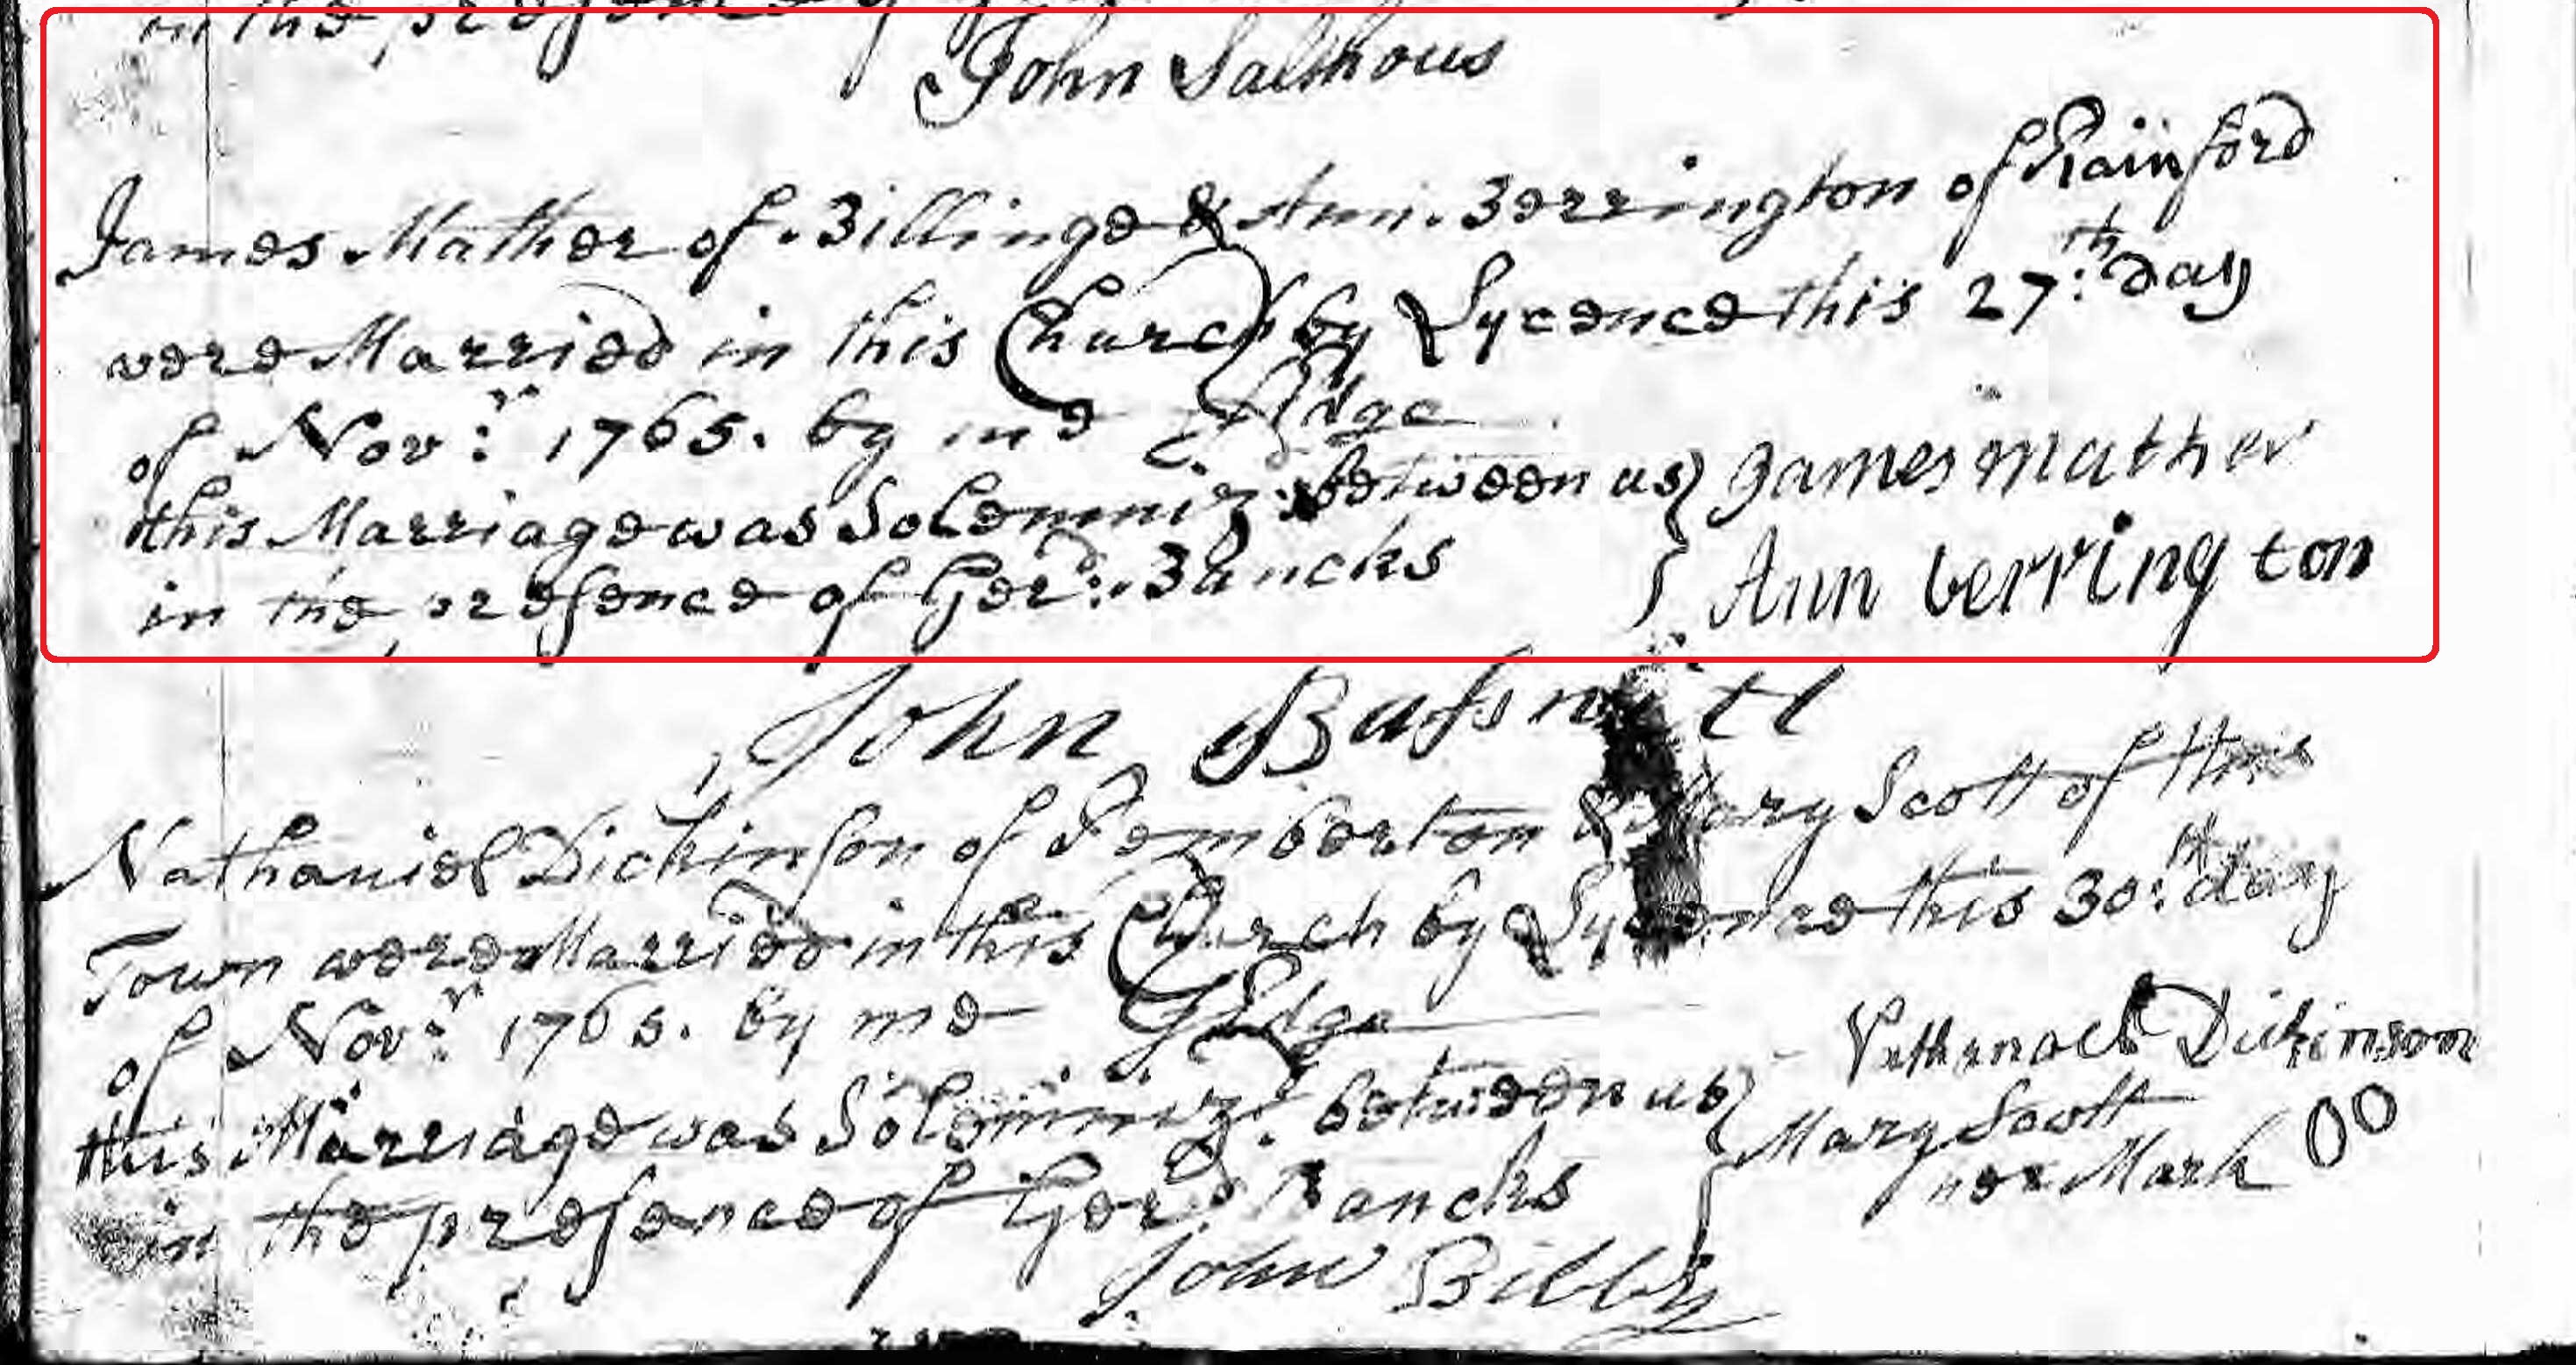 in the presence of
John Salthous
James Mather of Billinge & Ann Berrington of Rainford
were Married in this Church by Lycence this 27:th day
of Nov:r 1765. by me E Edge
this Marriage was Solemniz:d between us } James mather
in the presence of Ger:d Bancks } Ann berrington
John Basnett
Nathaniel Dickinson of Pemberton & Mary Scott of this
Town were Married in this Church by Lycence this 30:th day
of Nov:r 1765. by me G Edge
Nathanael Dickinson
this Marriage was Solemniz:d between us } Mary Scott
her Mark OO
in the presence of Ger:d Bancks
John Bilby